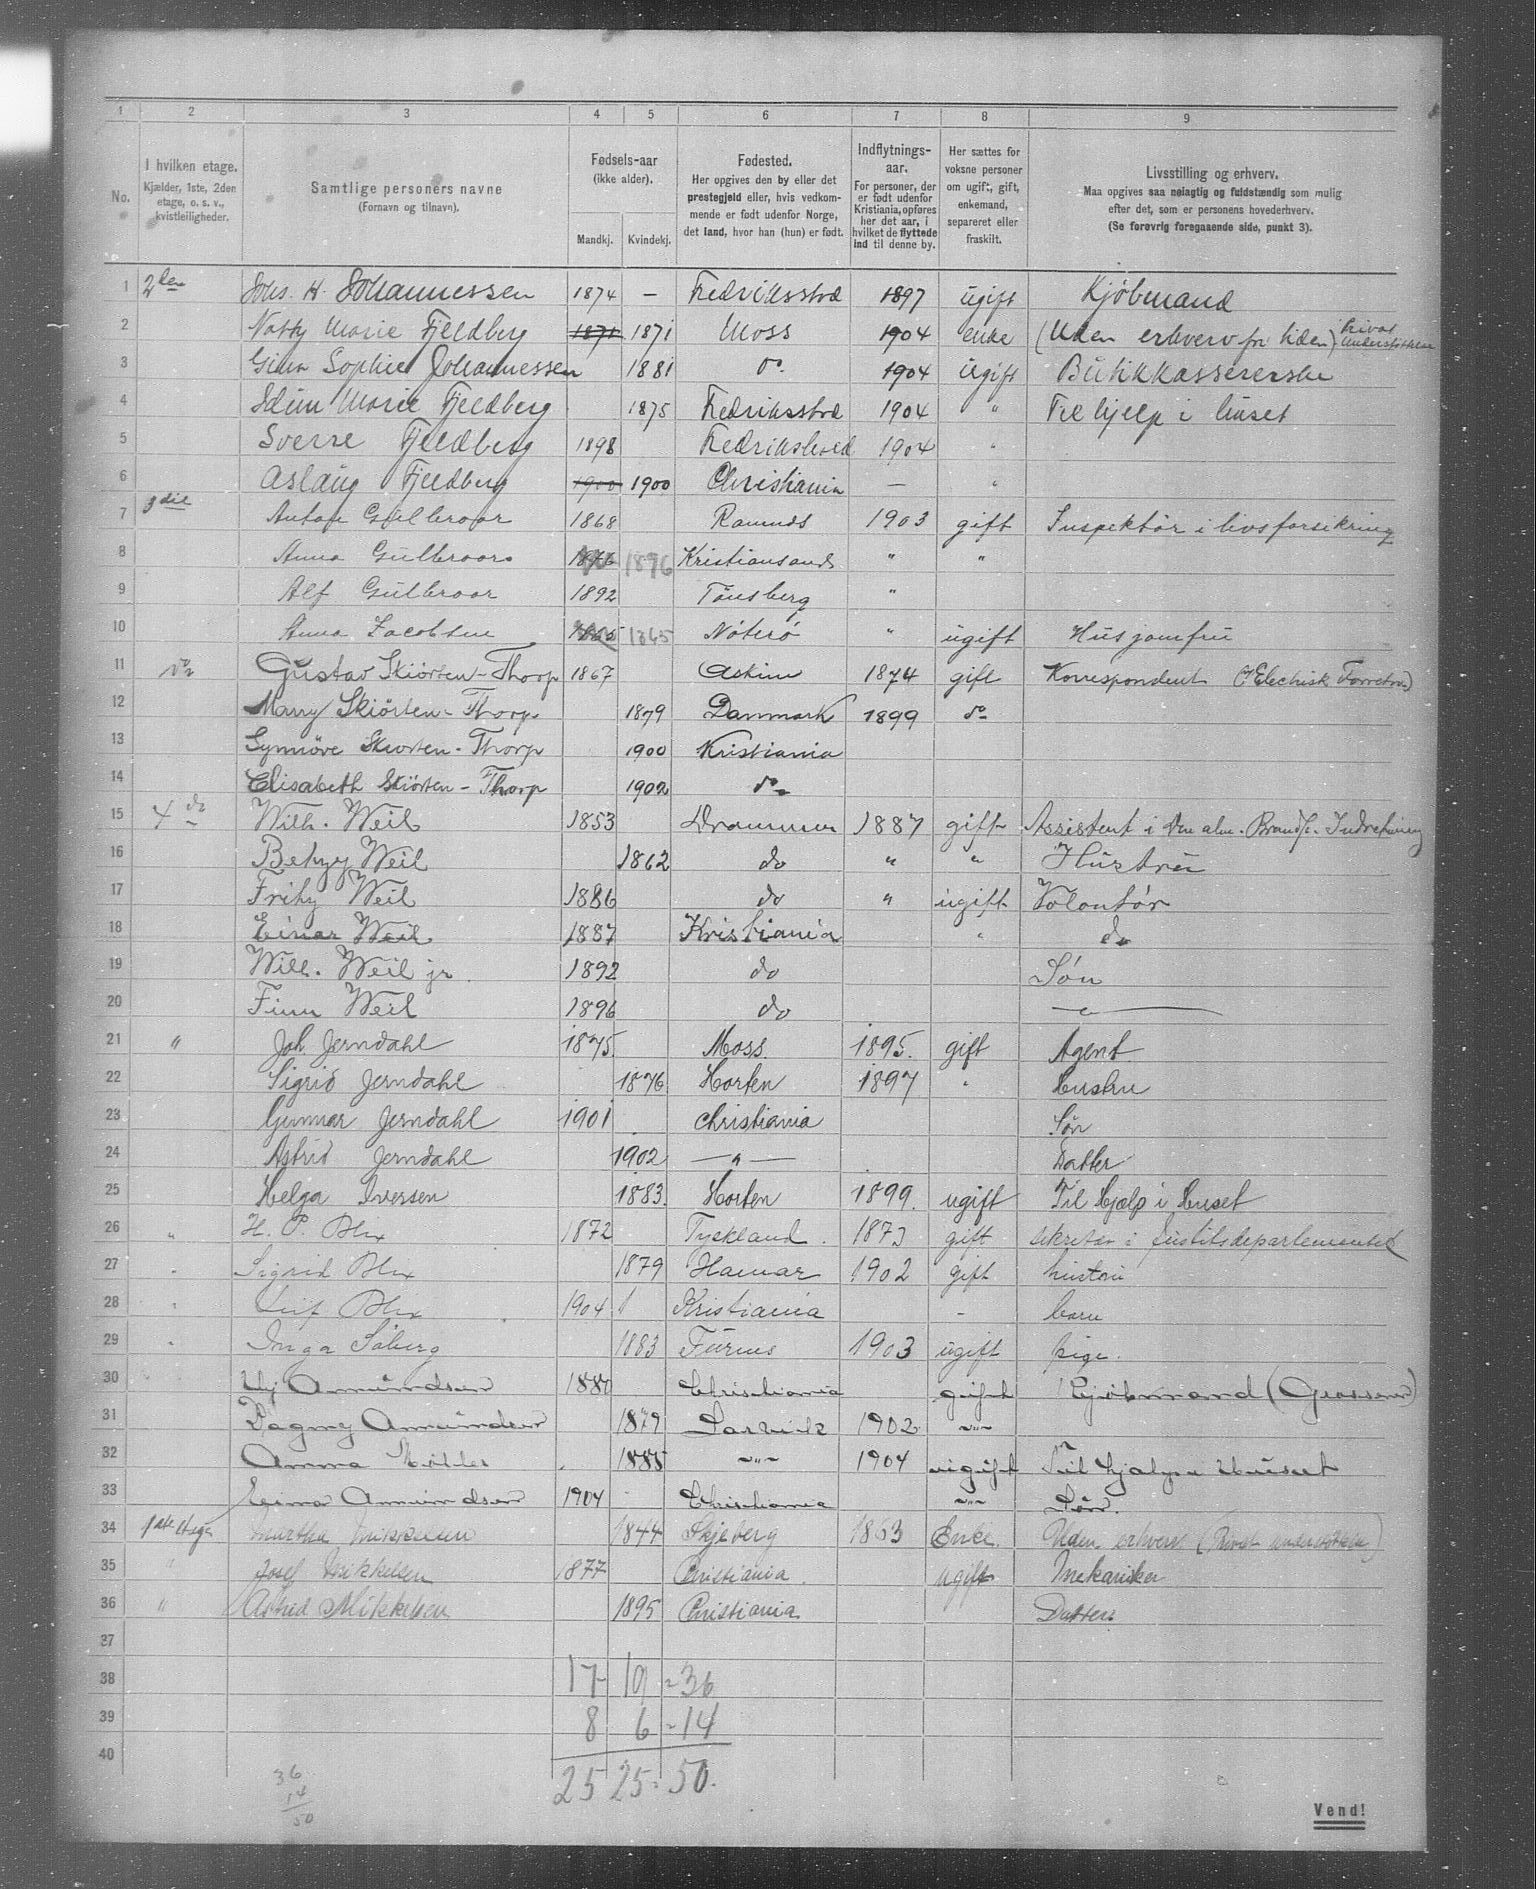 1 2 3 4 5 6 7 8 9
No.
I hvilken etage.
Kjælder, 1ste, 2den
etage, o. s. v.,
kvistleiligheder.
Samtlige personers navne
(Fornavn og tilnavn).
Fødsels-aar
(ikke alder).
Mandkj. Kvindekj.
Fødested.
Her opgives den by eller det
prestegjeld eller, hvis vedkom-
mende er født udenfor Norge,
det land, hvor han (hun) er født.
Indflytnings-
aar.
For personer, der
er født udenfor
Kristiania, opføres
her det aar, i
hvilket de flyttede
ind til denne by.
Her sættes for
voksne personer
om ugift, gift,
enkemand,
separeret eller
fraskilt.
Livsstilling og erhverv.
Maa opgives saa nøiagtig og fuldstændig som mulig
efter det, som er personens hovederhverv.
(Se forøvrig foregaaende side, punkt 3).
1 2den Johs. H. Johannessen 1874 — Fredriksstad 1897 ugift Kjøbmand
2 Marie Fjeldberg 1871 1871 Moss 1904 enke (Uden erhverv for tiden) Privat understøttelse
3 Sophie Johannessen 1881 do. 1904 Ugift Butikkassererske
4 Marie Fjeldberg 1875 Fredriksstad 1904 " Til hjelp i huset
5 Sverre Fjeldberg 1898 Fredrikshald 1904 "
6 Aslaug Fjeldberg 1900 1900 Christiania — "
7 3die Anton Gulbroar 1868 Ramnes 1903 gift Inspektør i livsforsikring
8 Anna Gulbroar 1876 Kristianssand " "
9 Alf Gulbroar 1892 Tønsberg "
10 Anna Jacobsen 1865 Nøterø " ugift Husjomfru
11 do Gustav Skiørten-Thorp 1867 Askim 1874 gift Korrespondent (Electrisk Forretn.)
12 Mary Skiørten-Thorp 1879 Danmark 1899 do
13 Synnöve Skiorten-Thorp 1900 Kristiania
14 Elisabeth Skiörten-Thorp 1902 do
15 4 do Wilh. Weil 1853 Drammen 1887 gift Assistent i Den alm. Brandf. Indretning
16 Betzy Weil 1862 do " " Hustru
17 Fritz Weil 1886 do " ugift Volontør
18 Einar Weil 1887 Kristiania " do
19 Wilh. Weil jr. 1892 do Søn
20 Finn Weil 1896 do — " —
21 " Joh. Jerndahl 1875 Moss. 1895. gift Agent
22 Sigrid Jerndahl 1876 Horten 1897 " Hustru
23 Gunnar Jerndahl 1901 Christiania Søn
24 Astrid Jerndahl 1902 — " — Datter
25 Helga Iversen 1883. Horten 1899. ugift Til Hjælp i Huset
26 " H. P. Blix 1872 Tyskland. 1873 gift sekretær i Justitsdepartementet
27 " Sigrid Blix 1879 Hamar 1902 gift hustru
28 " Leif Blix 1904 Kristiania — barn
29 " Inga Söberg 1883 Furnes 1903 ugift pige.
30 Hj Amundsen 1880 Christiania gift Kjøbmand (Grosserer)
31 Dagny Amundsen 1879 Larvik 1902 —"—
32 Anna 1885 —"— 1904 ugift Til hjælp i Huset
33 Einar Amundsen 1904 Christiania —"— Søn
34 1ste Etage Martha Mikkelsen 1844 Skjeberg 1853 Enke. Uden erhverv (Privat understøttelse)
35 " Josef Mikkelsen 1877 Christiania. ugift Mekaniker
36 " Astrid Mikkelsen 1895 Christiania Datter.
37
38 17 19 = 36
39 8 6 = 14
40
25 25 = 50.
36
14
50
Vend!